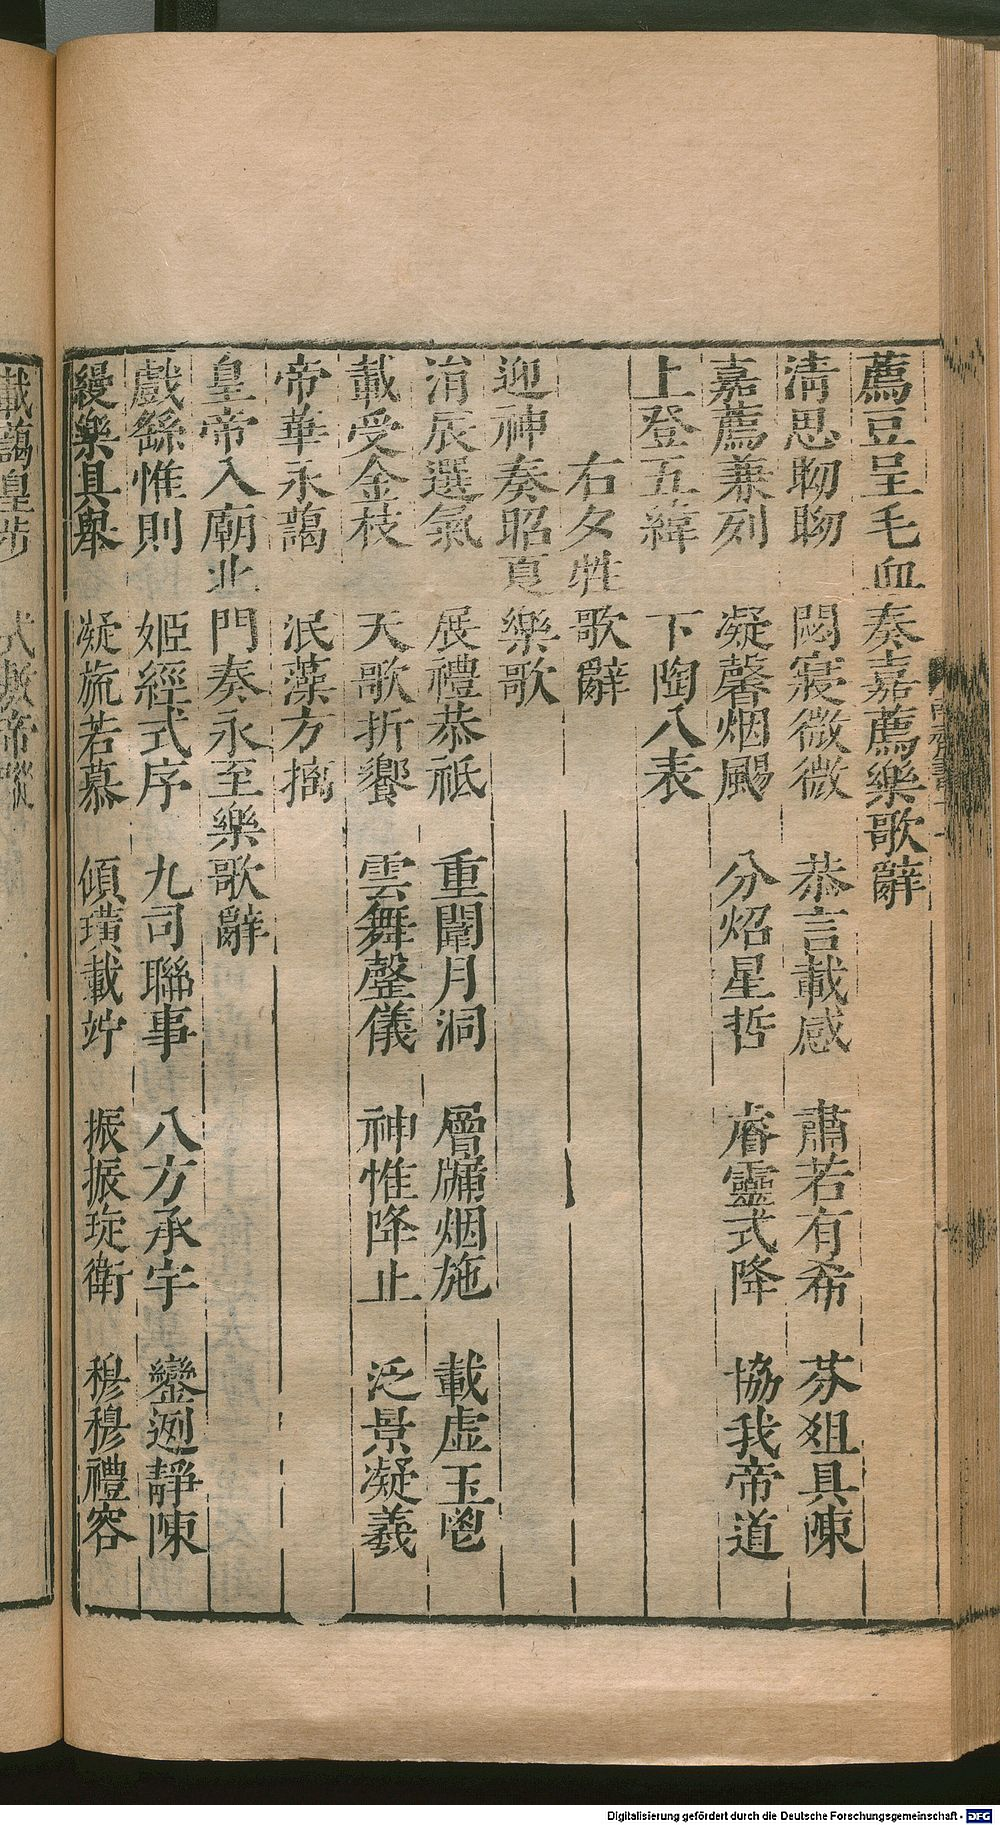 薦豆呈毛血奏嘉薦樂歌辭
清思𥆞𥆞　閟寢微微　恭言載感　肅若有希　芬俎具陳
嘉薦兼列　凝馨烟颺　分炤星哲　睿靈式降　協我帝道
上登五緯　下陶八表
右夕牲歌辭
迎神奏昭夏樂歌
涓辰選氣　展禮恭祗　重闈月洞　層牖烟施　載虛玉鬯
載受金枝　天歌折饗　雲舞罄儀　神惟降止　泛景凝羲
帝華永藹　泯藻方摛
皇帝入廟北門奏永至樂歌辭
戲繇惟則　姬經式序　九司聯事　八方承宇　鑾迾靜陳
縵樂具舉　凝旒若慕　傾璜載竚　振振琁衛　穆穆禮容
載藹皇步　式敷帝蹤
Digitalisierung gefördert durch die Deutsche Forschungsgemeinschaft - DFG